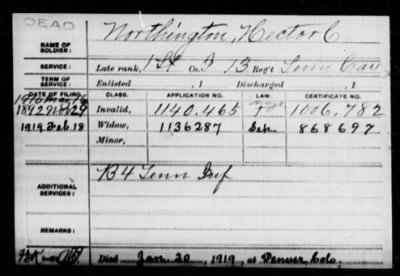 DEAD
NAME OF SOLDIER: Northington, Hector C
SERVICE: Late rank, 1st Co. 13 Reg't Tenn Cav
TERM OF SERVICE: Enlisted , 1 Discharged , 1
DATE OF FILING. CLASS. APPLICATION NO. LAW. CERTIFICATE NO.
1892 Nov 29 Invalid, 1140.465 1006.782
1919 Feb. 18 Widow, 1136287 868697
Minor,
ADDITIONAL SERVICES: B 4 Tenn Inf
REMARKS:
Died Jan. 20, 1919, at Denver, Colo.